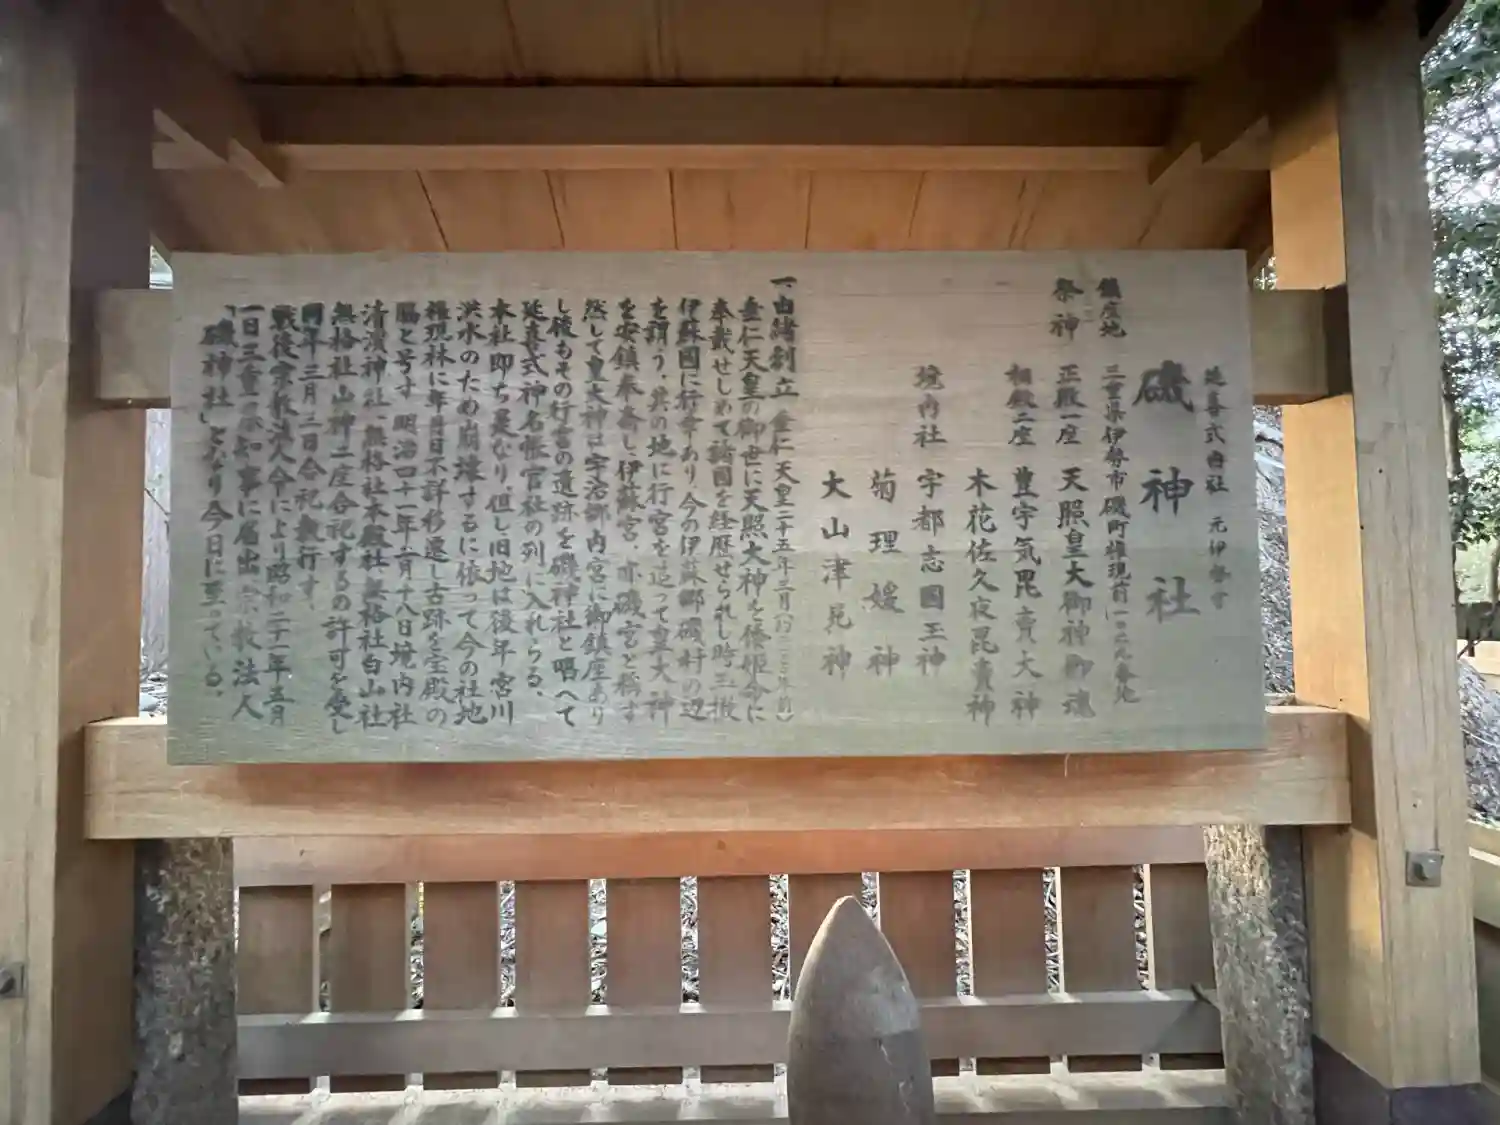 延喜式内社 元伊勢宮
磯神社
鎮座地 三重県伊勢市磯町権現前一〇六九番地
祭神 正殿一座 天照皇大御神御魂
相殿二座 豊宇気毘売大神
木花佐久夜毘売神
境内社 宇都志國玉神
菊理媛神
大山津見神
一、由緒創立 垂仁天皇二十五年三月
垂仁天皇の御世に天照大神を倭姫命に
奉戴せしめて諸國を経歴せられし時玉撤
伊蘇國に行幸あり、今の伊蘇郷磯村の辺
を謂う、其の地に行宮を造って皇大神
を安鎮奉斎し、伊蘇宮、亦磯宮と称す
然して皇大神は宇治郷内宮に御鎮座あり
し後もその行宮の遺跡を磯神社と唱へて
延喜式神名帳官社の列に入れらる、
本社即ち是なり、但し旧地は後年宮川
洪水のため崩壊するに依って今の社地
権現林に年月日不詳移遷し古跡を宝殿の
脇と号す 明治四十一年二月十八日境内社
清濱神社、無格社本殿社、無格社白山社
無格社山神二座合祀するの許可を受し
同年三月三日合祀執行す、
戦後宗教法人令により昭和二十一年五月
一日三重県知事に届出宗教法人
「磯神社」となり今日に至っている、